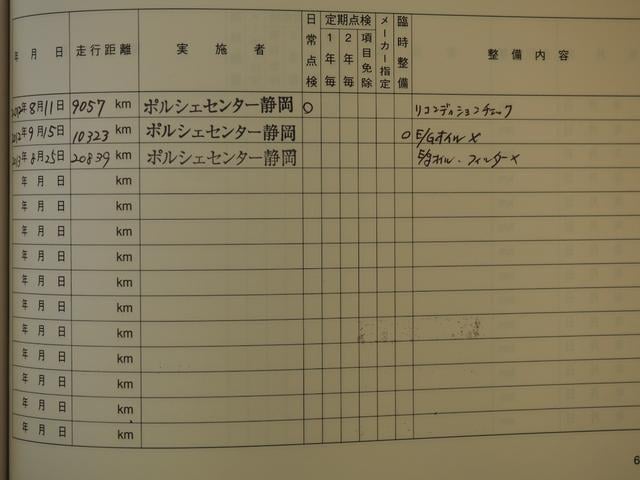 年 月 日 走行距離 実施者 日常点検 定期点検 1年毎 2年毎 項目免除 メーカー指定 臨時整備 整備内容
2012年8月11日 9057 km ポルシェセンター静岡 ○ リコンディションチェック
2012年9月15日 10323 km ポルシェセンター静岡 ○ E/Gオイル×
2013年8月25日 20839 km ポルシェセンター静岡 E/gオイル・フィルター×
年 月 日 km
年 月 日 km
年 月 日 km
年 月 日 km
年 月 日 km
年 月 日 km
年 月 日 km
年 月 日 km
年 月 日 km
年 月 日 km
年 月 日 km
6